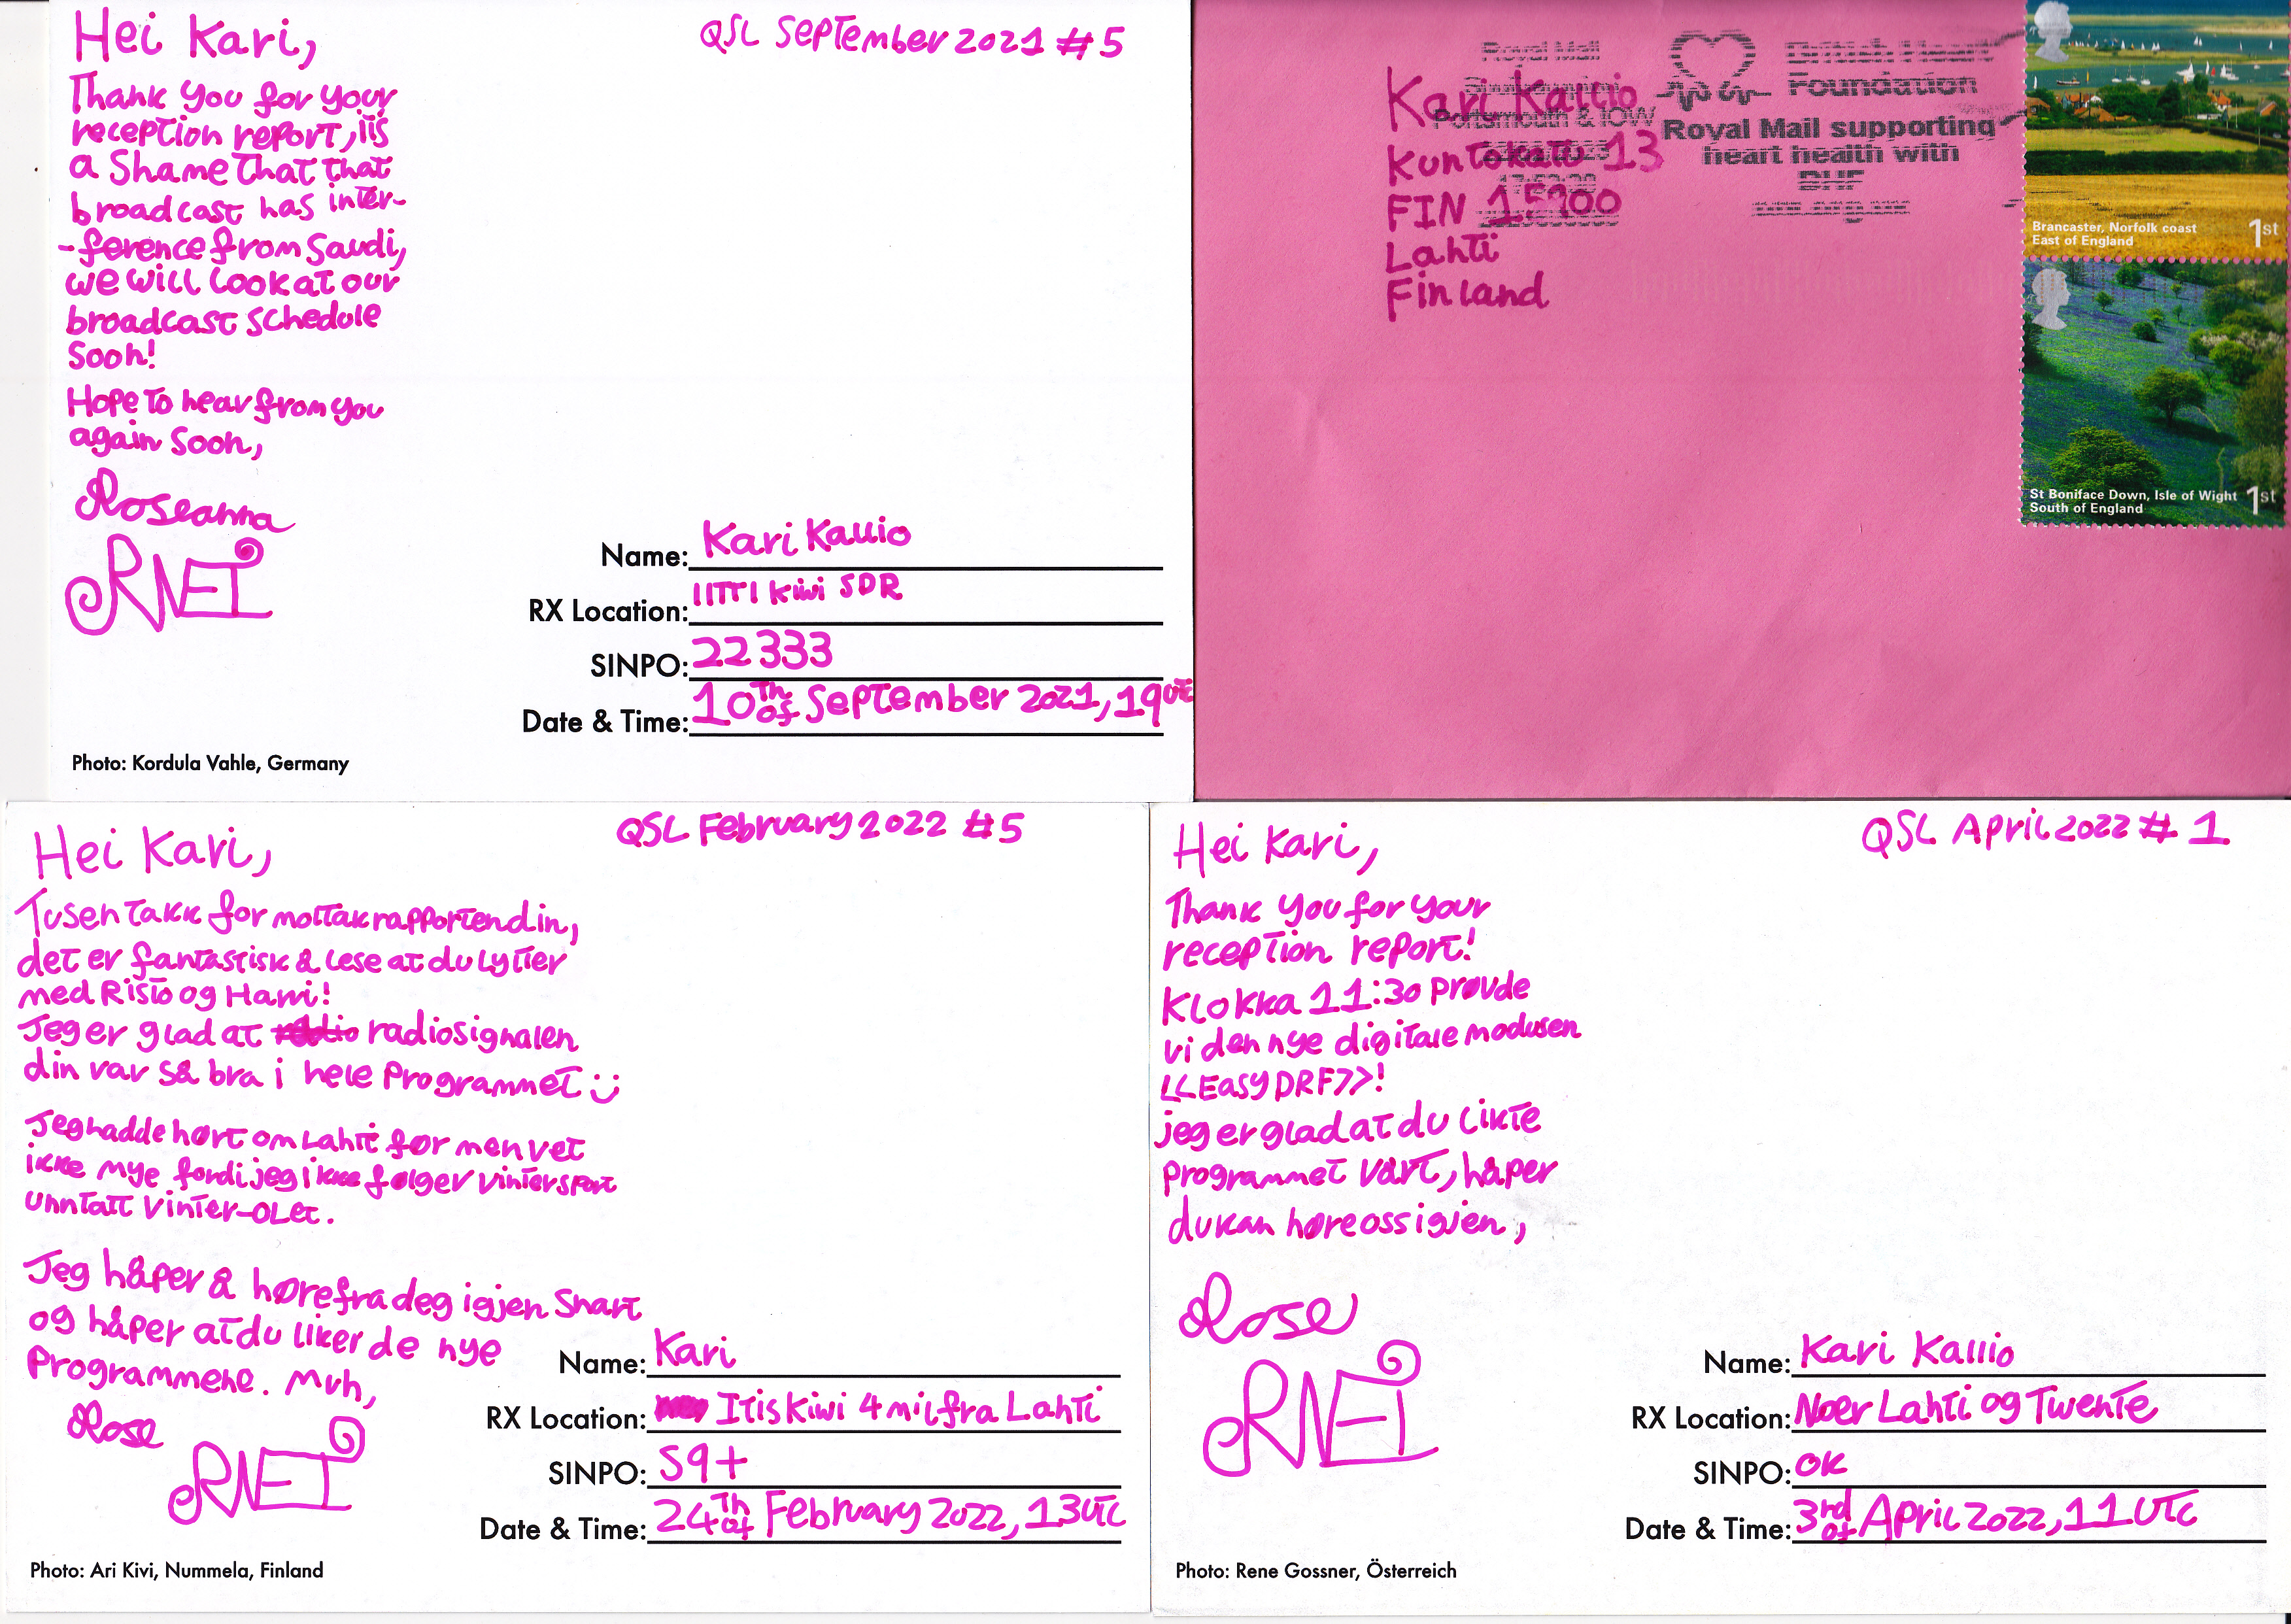 Hei Kari,
QSL September 2021 #5
Thank you for your
reception report, its
a Shame that that
broadcast has inter-
-ference from Saudi,
we will look at our
broadcast schedule
Soon!
Hope to hear from you
again Soon,
Roseanna
RNEI
Name: Kari Kallio
RX Location: IITTI Kiwi SDR
SINPO: 22333
Date & Time: 10th of September 2021, 19UTC
Photo: Kordula Vahle, Germany
Royal Mail
Portsmouth & IOW
British Heart
Foundation
Royal Mail supporting
heart health with
BHF
Kari Kallio
Kuntokatu 13
FIN 15900
Lahti
Finland
Brancaster, Norfolk coast
East of England
1st
St Boniface Down, Isle of Wight
South of England
1st
Hei Kari,
QSL February 2022 #5
Tusen takk for mottakrapporten din,
det er fantastisk å lese at du lytter
med Risto og Harri!
Jeg er glad at radiosignalen
din var så bra i hele Programmet :)
Jeg hadde hørt om Lahti før men vet
ikke mye fordi jeg ikke følger vintersport
unntatt vinter-OLet.
Jeg håper å høre fra deg igjen Snart
og håper at du liker de nye
Programmene. Mvh,
Rose
RNEI
Name: Kari
RX Location: Itis Kiwi 4 mil fra Lahti
SINPO: S9+
Date & Time: 24th of February 2022, 13UTC
Photo: Ari Kivi, Nummela, Finland
Hei Kari,
QSL April 2022 # 1
Thank you for your
reception report!
Klokka 11:30 prøvde
vi den nye digitale modusen
<<EasyDRF>>!
jeg er glad at du likte
programmet vårt, håper
du kan høre oss igjen,
Rose
RNEI
Name: Kari Kallio
RX Location: Nær Lahti og Twente
SINPO: OK
Date & Time: 3rd of April 2022, 11UTC
Photo: Rene Gossner, Österreich